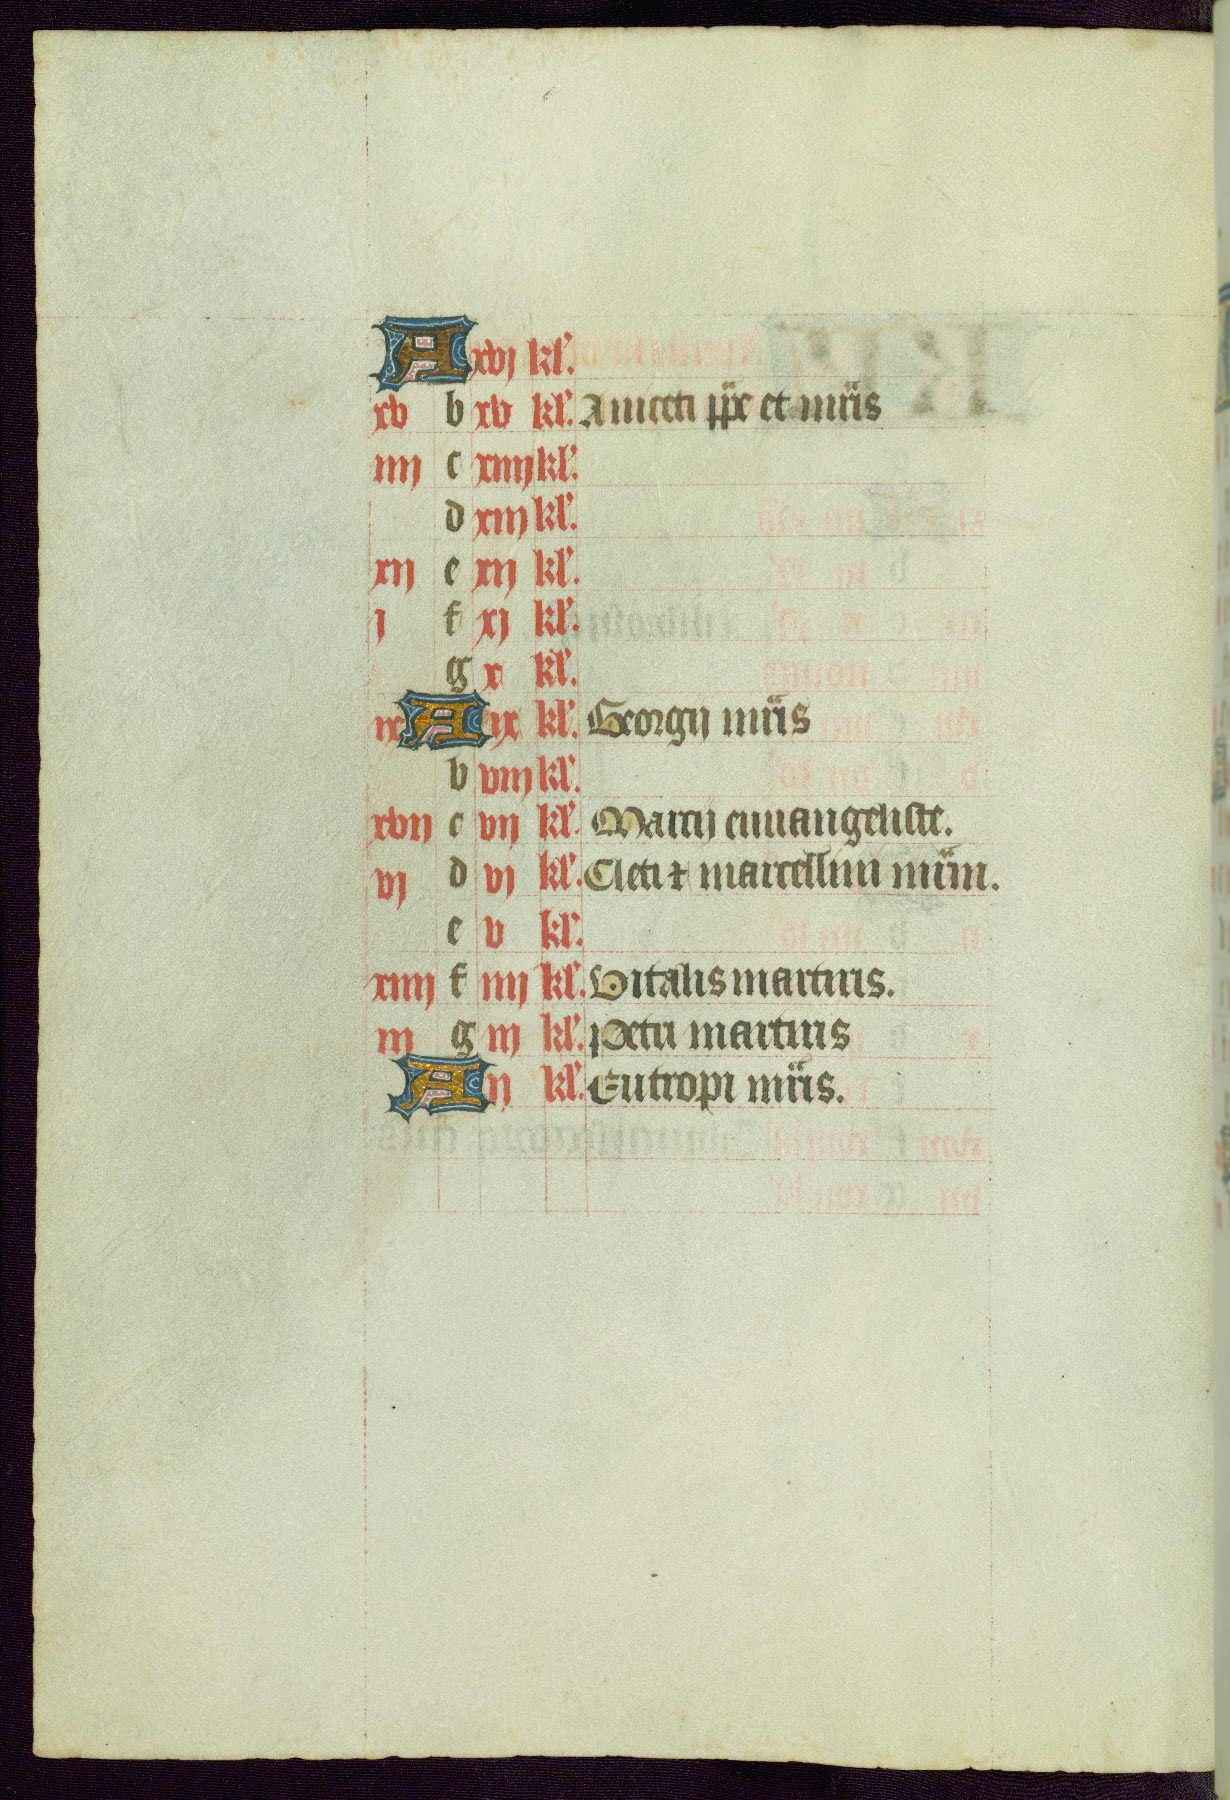 A xvj kl'.
xv b xv kl'. Aniceti ppe et mris
iiij c xiiij kl'.
d xiij kl'.
xij e xij kl'.
j f xj kl'.
g x kl'.
ix A ix kl'. Georgij mris
b viij kl'.
xvij c vij kl'. Marcij euuangeliste.
vj d vj kl'. Cleti ⁊ marcellini mrm.
e v kl'.
xiiij f iiij kl'. Vitalis martiris.
iij g iij kl'. Petri martiris
A ij kl'. Eutropi mris.